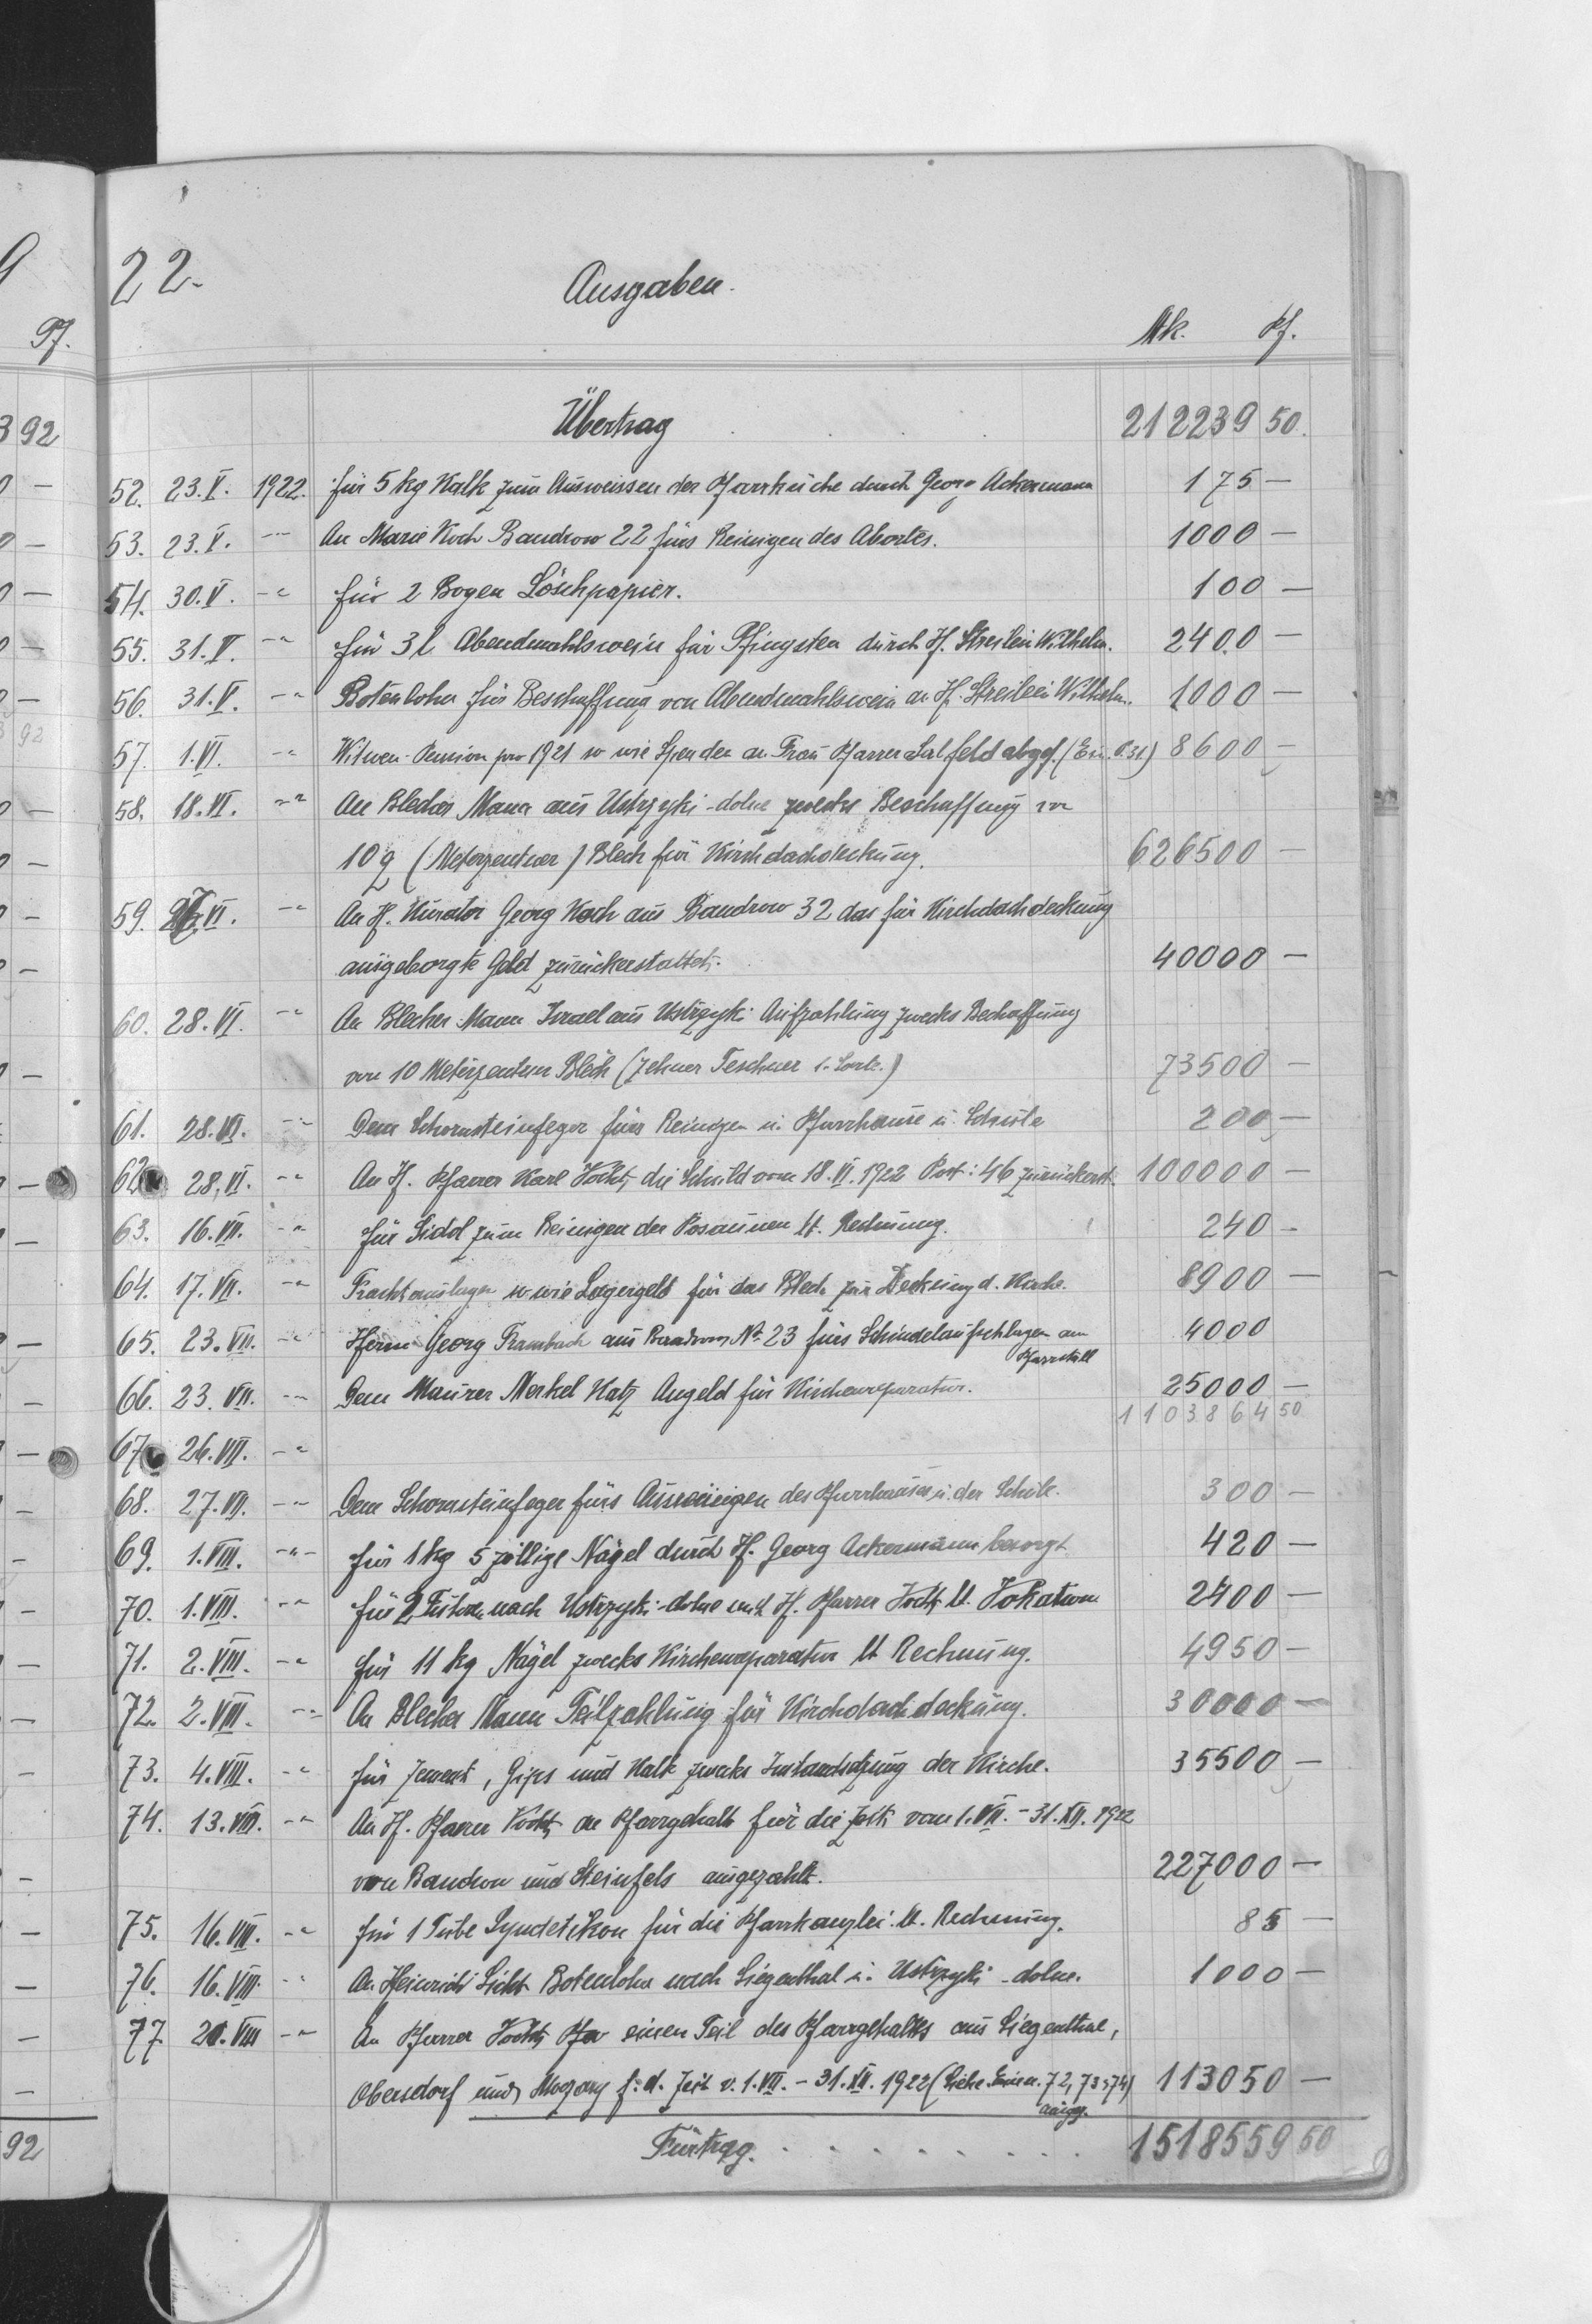 22.
Ausgaben.
Mk. Pf.
Übertrag 212239 50.
52. 23.V. 1922. für 5 kg Kalk zum Ausweissen der Pfarrküche durch Georg Ackermann 175 —
53. 23.V. -"- An Marie Koch Bandrow 22 fürs Reinigen des Abortes. 1000 —
54. 30.V. -"- für 2 Bogen Löschpapier. 100 —
55. 31.V. -"- für 3 l Abendmahlswein für Pfingsten durch H. Streilein Wilhelm. 2400 —
56. 31.V. -"- Botenlohn für Beschaffung von Abendmahlswein an H. Streilein Wilhelm. 1000 —
57. 1.VI. -"- Witwen-Pension pro 1921 so wie Spenden an Frau Pfarrer abgef. 8600 —
58. 18.VI. -"- An Blecher Mann aus Ustrzyki-dolne zwecks Beschaffung von
10 q (Meterzentner) Blech für Kirchdachdeckung. 626500 —
59. VI. -"- An H. Kurator Georg Koch aus Bandrow 32 das für Kirchdachdeckung
ausgeborgte Geld zurückerstattet. 40000 —
60. 28.VI. -"- An Blecher Mann Israel aus Ustrzyki Aufzahlung zwecks Beschaffung
von 10 Meterzentner Blech (Zehner Teschner 1. Sorte.) 73500 —
61. 28.VI. -"- Dem Schornsteinfeger fürs Reinigen i. Pfarrhause u. Schule 200 —
62. 28.VI. -"- An H. Pfarrer Karl die Schuld vom 18.VI.1922 Post: 46 zurückerst. 100000 —
63. 16.VII. -"- für Sidol zum Reinigen der Posaunen lt. Rechnung. 240 —
64. 17.VII. -"- Frachtauslagen so wie Lagergeld für das Blech zur Deckung d. Kirche. 8900 —
65. 23.VII. -"- Herrn Georg Rambach aus Bandrow No 23 fürs Schindelaufschlagen am 4000
Pfarrstall
66. 23.VII. -"- Dem Maurer Merkel Katz Angeld für Kirchenreparatur. 25000 —
1103864 50
67. 26.VII. -"-
68. 27.VII. -"- Dem Schornsteinfeger fürs Ausreinigen des Pfarrhauses u. der Schule. 300 —
69. 1.VIII. -"- für 1 kg 5 zöllige Nägel durch H. Georg Ackermann besorgt 420 —
70. 1.VIII. -"- für 2 nach Ustrzyki-dolne mit H. Pfarrer lt. Vokation 2400 —
71. 2.VIII. -"- für 11 kg Nägel zwecks Kirchenreparatur lt Rechnung. 4950 —
72. 2.VIII. -"- An Blecher Mann Teilzahlung für Kirchdachdeckung. 30000 —
73. 4.VIII. -"- für Zement, Gips und Kalk zwecks Instandsetzung der Kirche. 35500 —
74. 13.VIII. -"- An H. Pfarrer an Pfarrgehalt für die Zeit vom 1.VII. - 31.XII. 1922
von Bandrow und Steinfels ausgezahlt. 227000 —
75. 16.VIII. -"- für 1 Tube Syndetikon für die Pfarrkanzlei lt. Rechnung. 85 —
76. 16.VIII. -"- An Heinrich Botenlohn nach Siegenthal u. Ustrzyki-dolne. 1000 —
77. VIII -"- An Pfarrer einen Teil des Pfarrgehalts aus Siegenthal,
Obersdorf und f. d. Zeit v. 1.VII. - 31.XII. 1922 (Siehe 72, 73, 74) 113050 —
ausgez.
Fürtrag. 1518559 50
Pf.
92
92
92